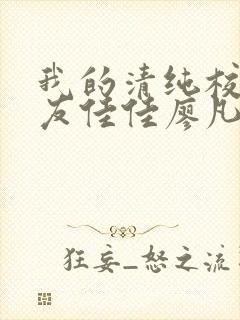 我的清纯校
友佳佳廖凡
狂妄_怒之流